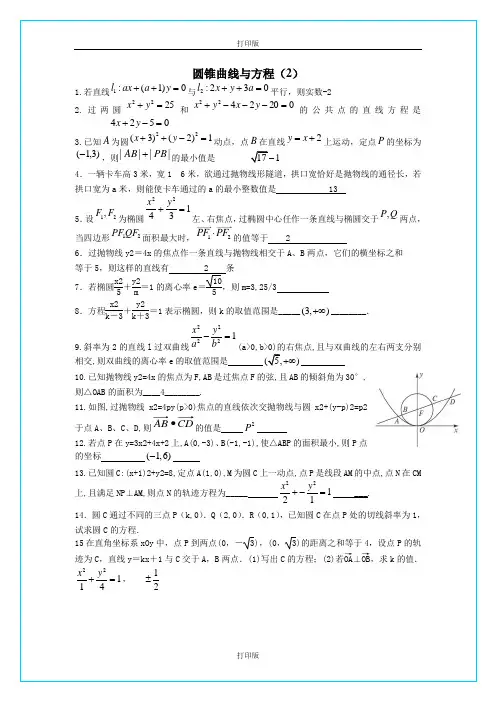 打印版
圆锥曲线与方程（2）
1.若直线l₁:ax+(a+1)y=0与l₂:2x+y+3a=0平行，则实数-2
2.过两圆x²+y²=25和x²+y²-4x-2y-20=0的公共点的直线方程是
4x+2y-5=0
3.已知A为圆(x+3)²+(y-2)²=1动点，点B在直线y=x+2上运动，定点P的坐标为
(-1,3)，则|AB|+|PB|的最小值是 √17-1
4．一辆卡车高3米，宽1 6米，欲通过抛物线形隧道，拱口宽恰好是抛物线的通径长，若
拱口宽为a米，则能使卡车通过的a的最小整数值是 13
5．设F₁,F₂为椭圆x²/4+y²/3=1左、右焦点，过椭圆中心任作一条直线与椭圆交于P,Q两点，
当四边形PF₁QF₂面积最大时，PF₁·PF₂的值等于 2
6．过抛物线y2＝4x的焦点作一条直线与抛物线相交于A、B两点，它们的横坐标之和
等于5，则这样的直线有 2 条
7．若椭圆x2/5＋y2/m＝1的离心率e＝√10/5，则m=3,25/3
8．方程x2/(k－3)＋y2/(k＋3)＝1表示椭圆，则k的取值范围是_____(3,+∞)________．
9.斜率为2的直线l过双曲线x²/a²-y²/b²=1(a>0,b>0)的右焦点,且与双曲线的左右两支分别
相交,则双曲线的离心率e的取值范围是 (√5,+∞)
10.已知抛物线y2=4x的焦点为F,AB是过焦点F的弦,且AB的倾斜角为30°,
则△OAB的面积为____4________.
11.如图,过抛物线 x2=4py(p>0)焦点的直线依次交抛物线与圆 x2+(y-p)2=p2
于点A、B、C、D,则AB•CD的值是 P²
12.若点P在y=3x2+4x+2上,A(0,-3)、B(-1,-1),使△ABP的面积最小,则P点
的坐标 (-1,6)
13.已知圆C:(x+1)2+y2=8,定点A(1,0),M为圆C上一动点,点P是线段AM的中点,点N在CM
上,且满足NP⊥AM,则点N的轨迹方程为_____ x²/2+-y²/1=1 ___.
14．圆C通过不同的三点P（k,0）．Q（2,0）．R（0,1），已知圆C在点P处的切线斜率为1，
试求圆C的方程．
15在直角坐标系xOy中，点P到两点(0，－√3)，(0，√3)的距离之和等于4，设点P的轨
迹为C，直线y＝kx＋1与C交于A，B两点．(1)写出C的方程；(2)若OA⊥OB，求k的值．
x²/1+y²/4=1， ±1/2
y
C
D
B
F
A
O
x
打印版